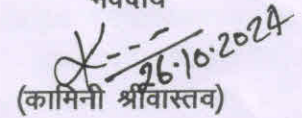 भवदीय
26.10.2024
(कामिनी श्रीवास्तव)